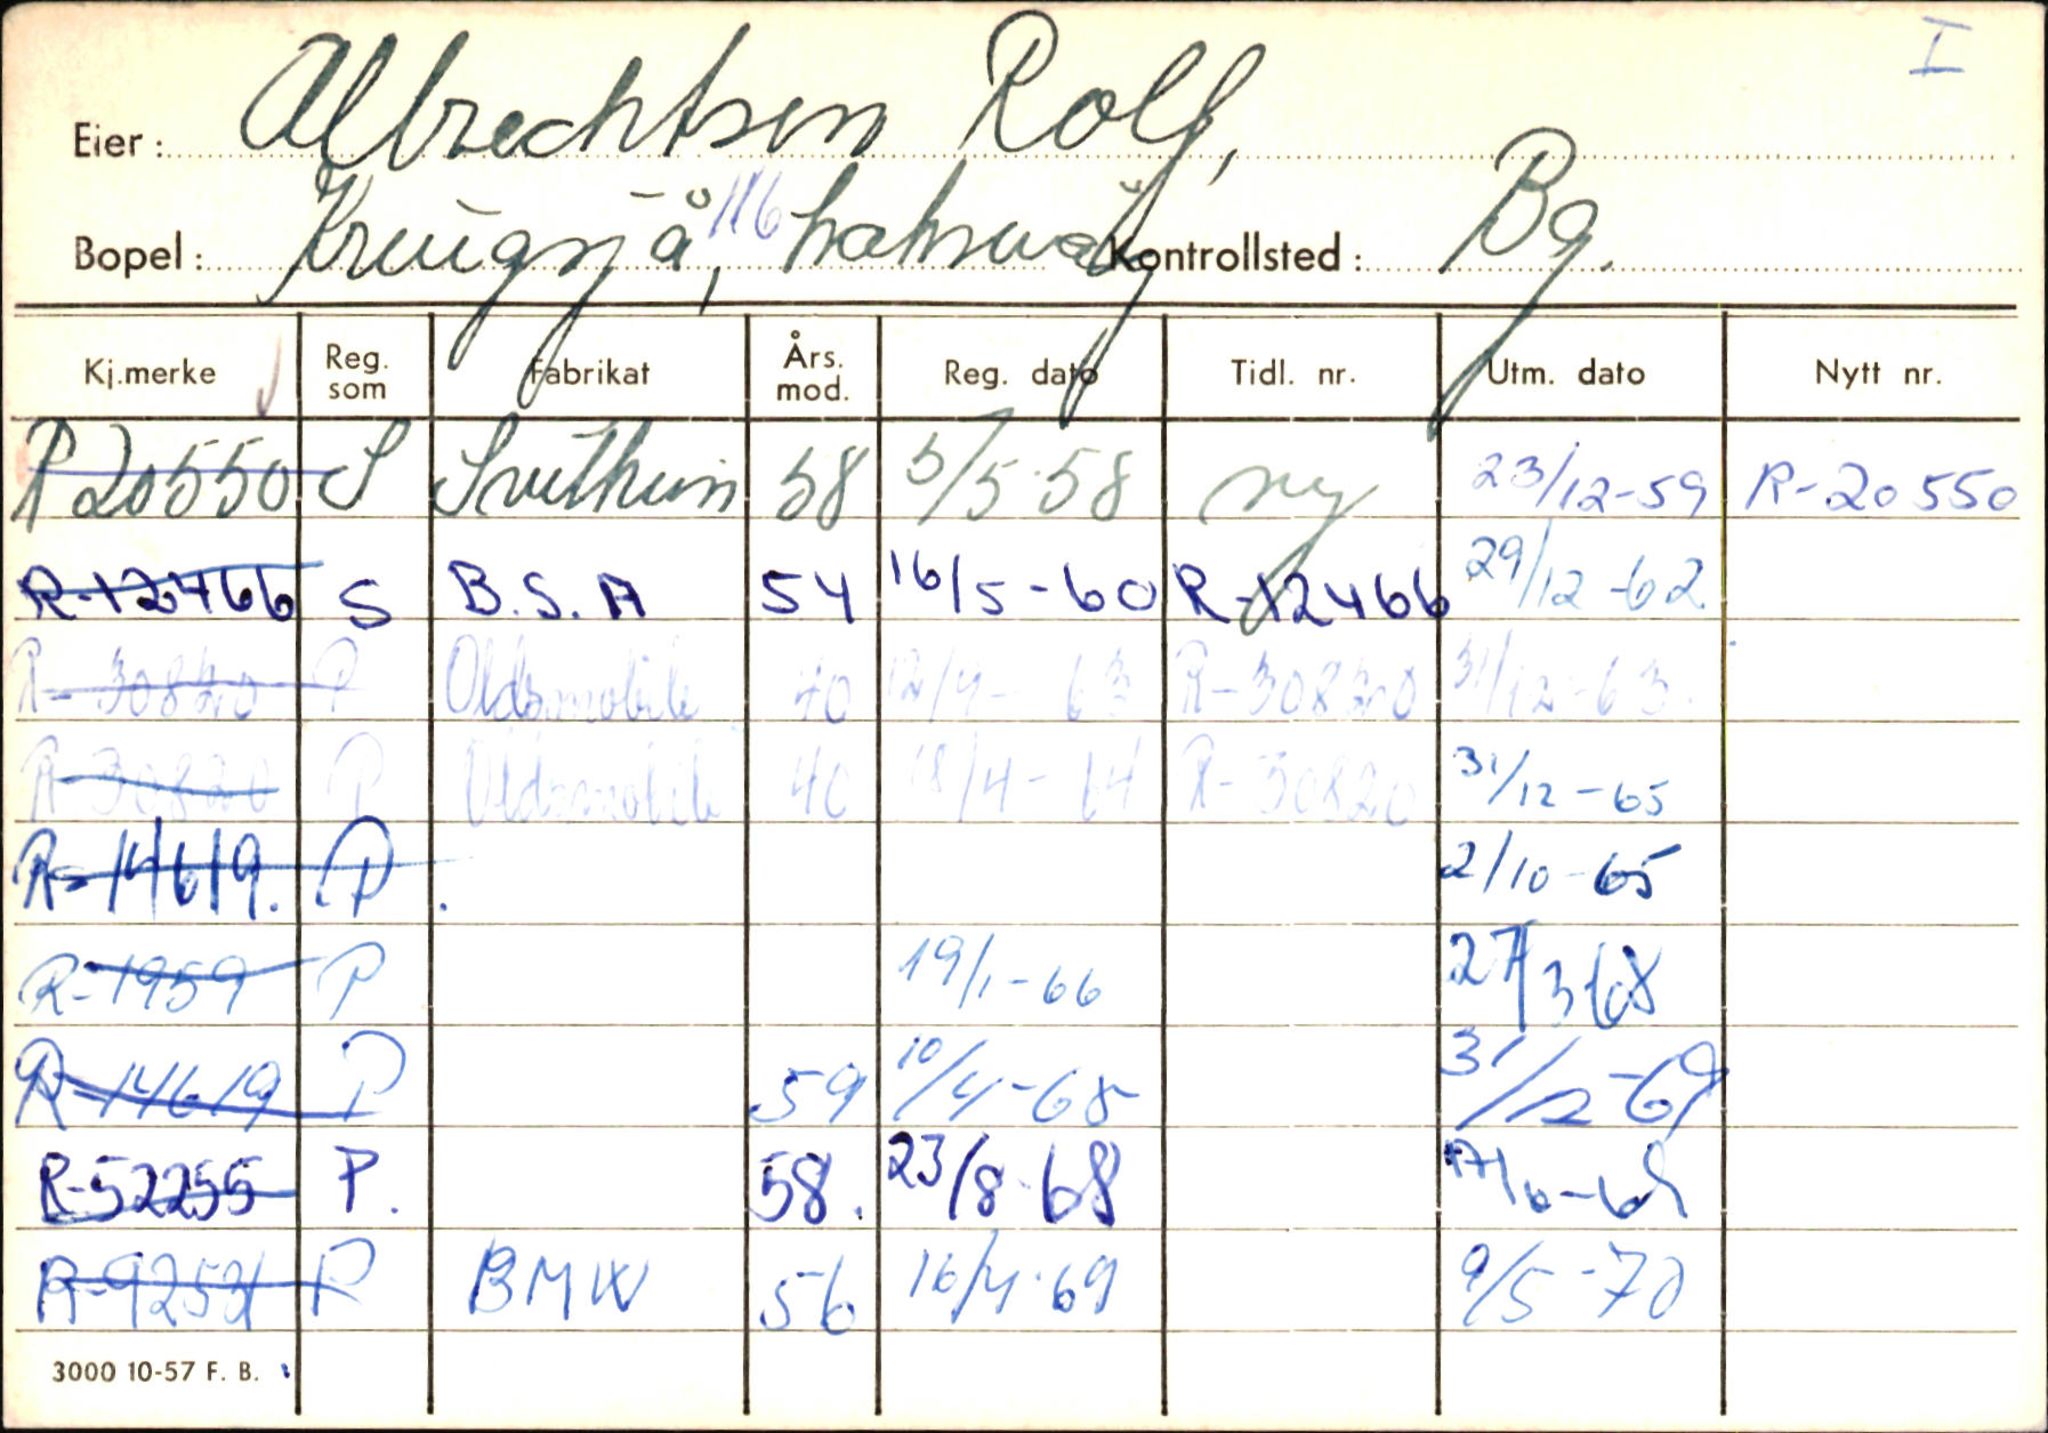 I
Eier: Albrechtsen Rolf,
Bopel: 116, Kontrollsted: Bg.
Kj.merke Reg. som Fabrikat Års. mod. Reg. dato Tidl. nr. Utm. dato Nytt nr.
R 20550 S Svithun 58 5/5-58 ny 23/12-59 R-20550
R-12466 S B.S.A 54 16/5-60 R-12466 29/12-62
R-30820 P Oldsmobile 40 12/4-63 R-30820 31/12-63.
R-30820 P Oldsmobile 40 18/4-64 R-30820 31/12-65
R-14619. P. 2/10-65
R-1959 P 19/1-66 27/3 68
R-14619 P 59 10/4-68 31/12-69
R-52255 P. 58. 23/8-68
R-9253 P BMW 56 16/4-69 9/5-70
3000 10-57 F. B.